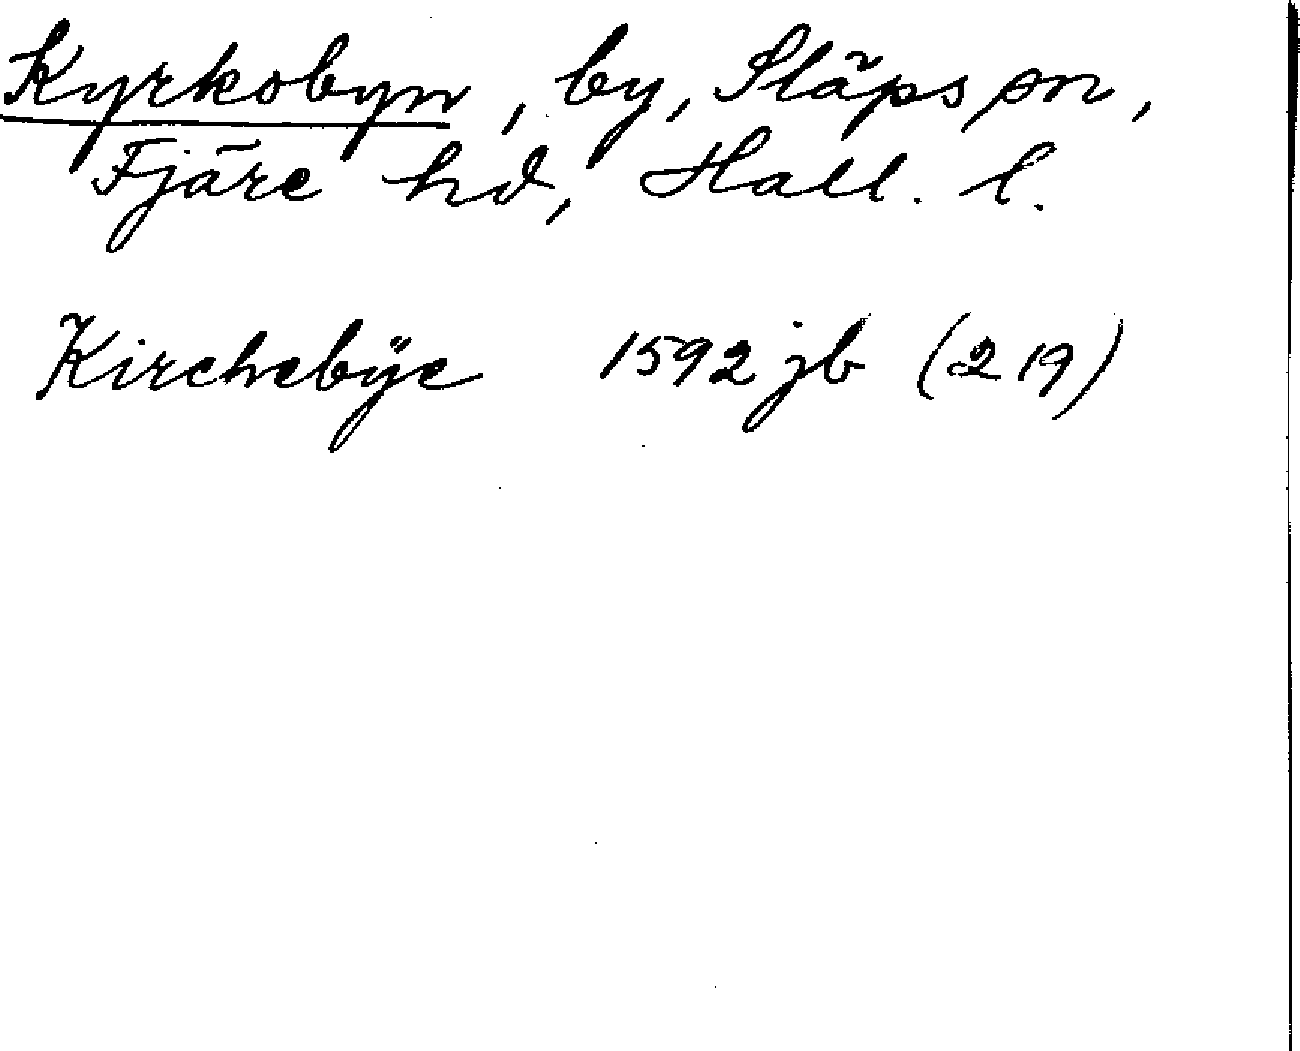 Kyrkobyn, by, Släps sn,
Fjäre hd, Hall. l.
Kirchebÿe 1592 jb (219)